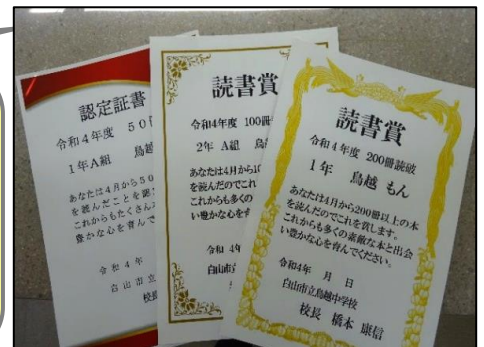 認定証書
令和4年度 50
1年A組 鳥越
あなたは4月から50
を読んだことを認
これからもたくさん
豊かな心を育んで
令和4年
白山市立
校長
読書賞
令和4年度 100冊
2年 A組 鳥
あなたは4月から10
を読んだのでこれ
これからも多くの
い豊かな心を
令和4年
白山市立
読書賞
令和4年度 200冊読破
1年 鳥越 もん
あなたは4月から200冊以上の本
を読んだのでこれを賞します。
これからも多くの素敵な本と出会
い豊かな心を育んでください。
令和4年 月 日
白山市立鳥越中学校
校長 橋本 康信